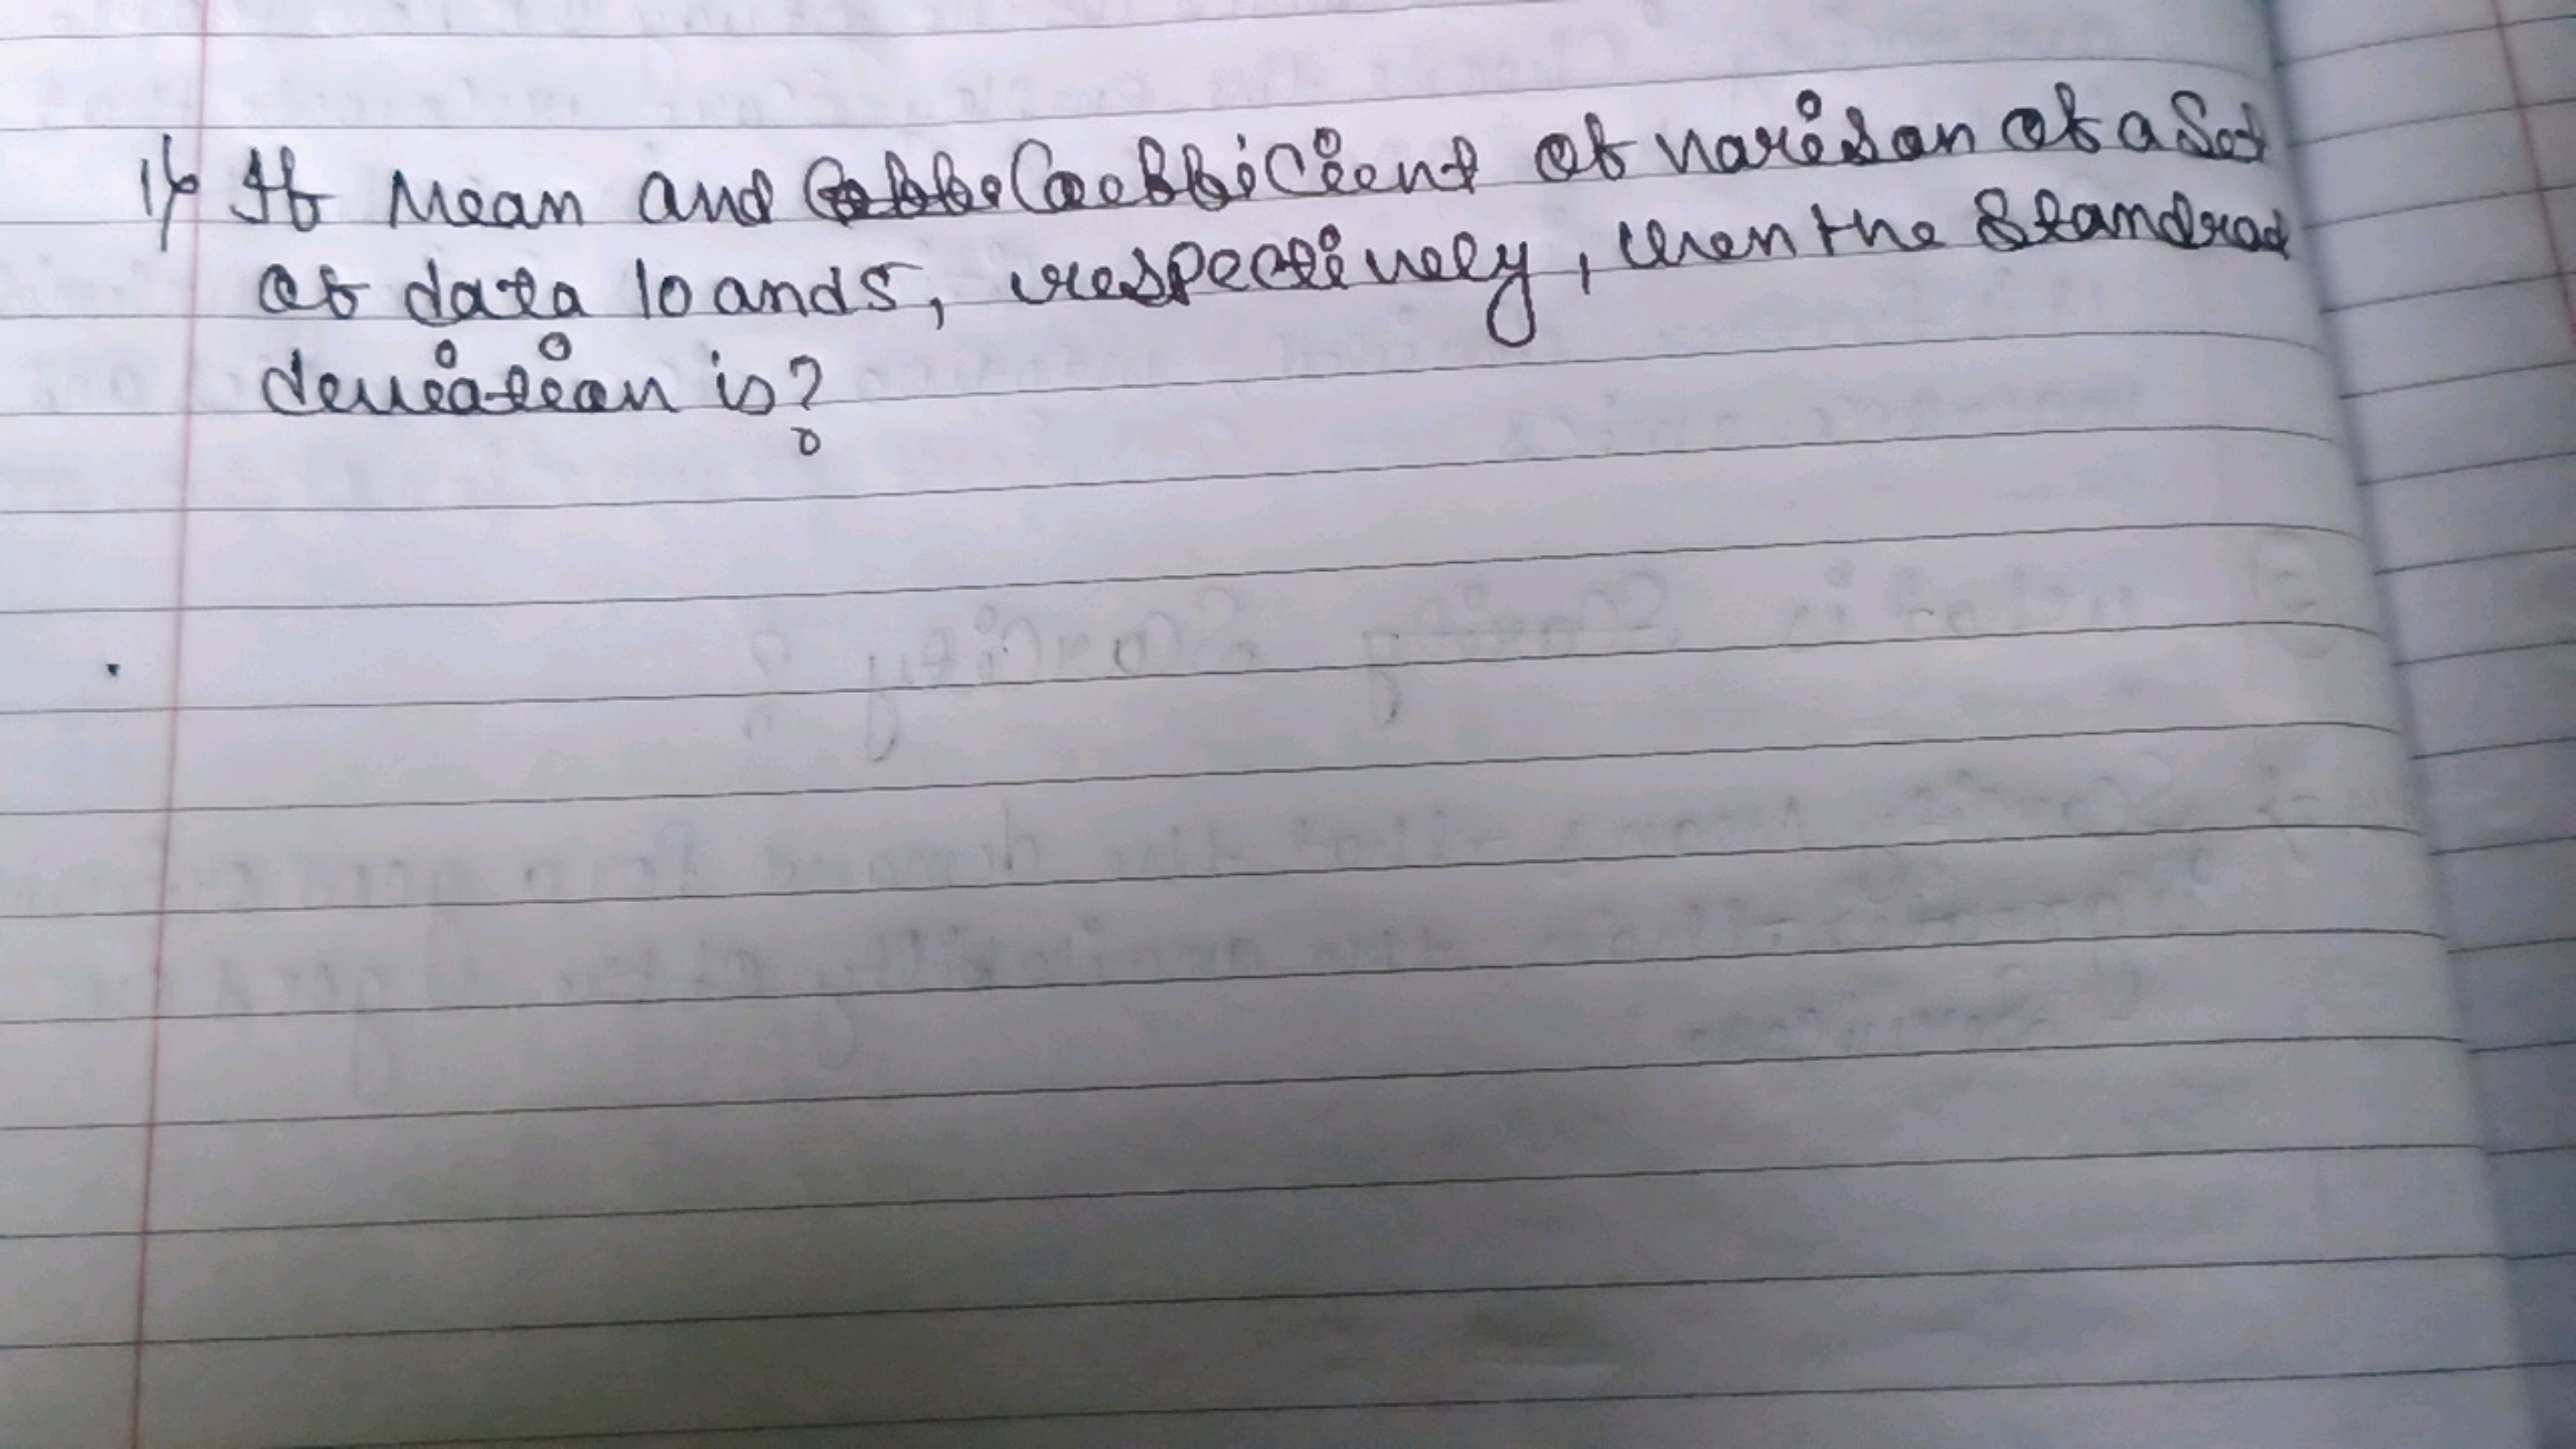 1) If Mean and Coefficient of varison of a Set
of data 10 and 5, respectively, then the Standrad
deviation is?